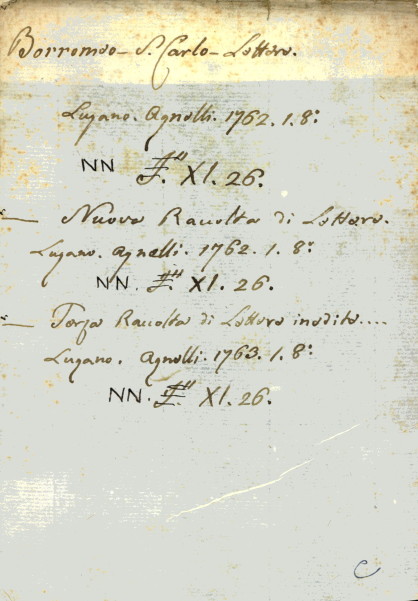 Borromeo - S. Carlo - Lettere.
Lugano. Agnelli. 1762. 1. 8°.
NN XI. 26.
— Nuova Raccolta di Lettere.
Lugano. Agnelli. 1762. 1. 8°.
NN. XI. 26.
— Terza Raccolta di Lettere inedite....
Lugano. Agnelli. 1763. 1. 8°.
NN. XI. 26.
C